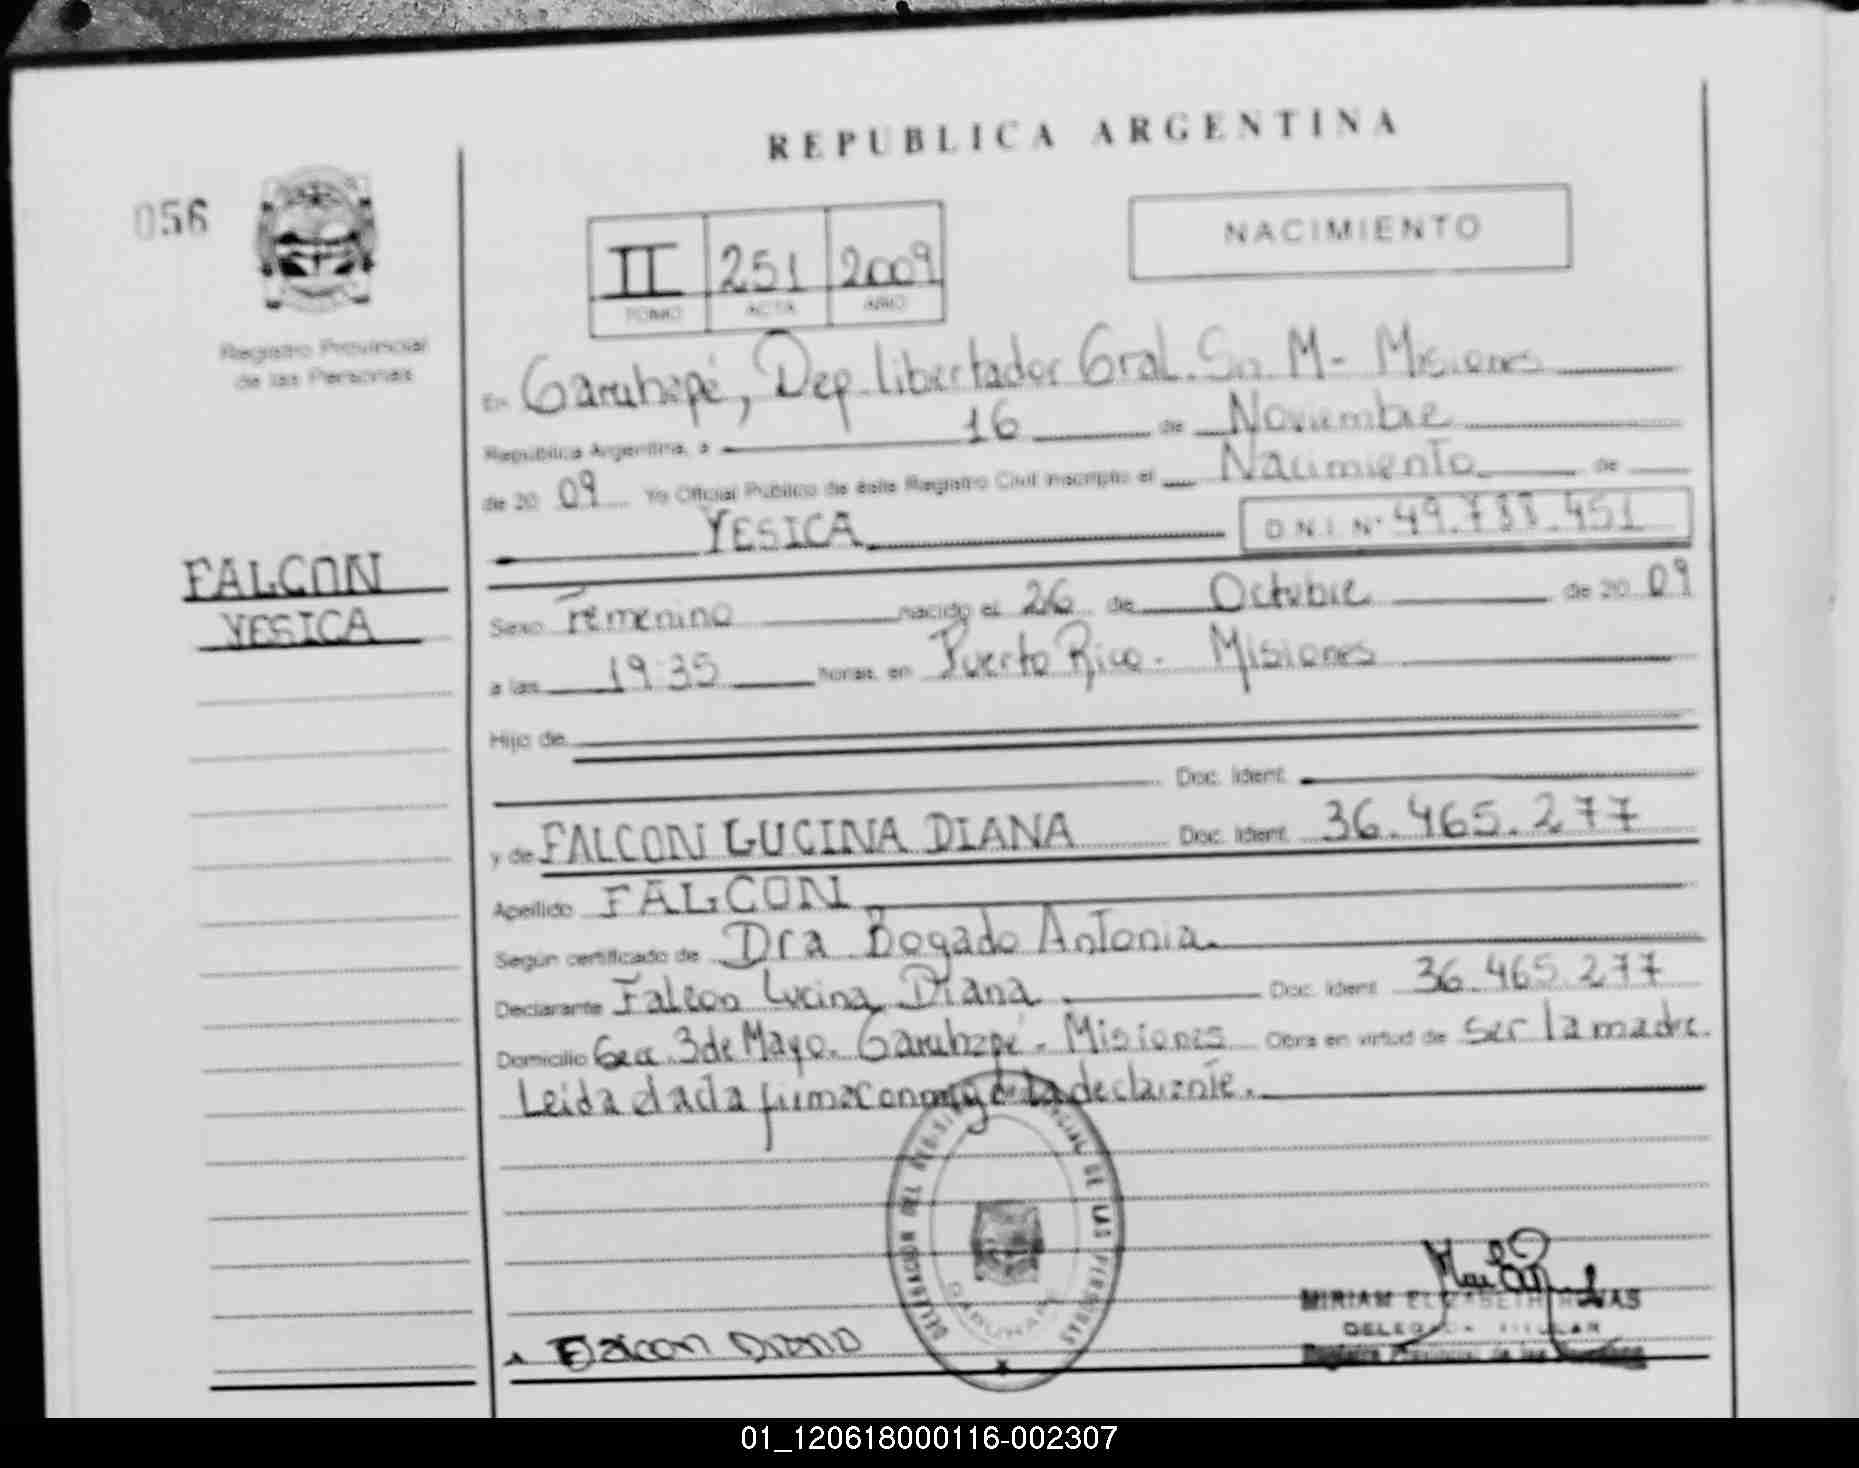 REPUBLICA ARGENTINA
056
NACIMIENTO
II 251 2009
TOMO ACTA AÑO
Registro Provincial
de las Personas
En Garuhapé, Dep. libertador Gral. Sn. M- Misiones
República Argentina, a 16 de Noviembre
de 20 09 Yo Oficial Público de éste Registro Civil inscripto el Nacimiento de
YESICA D.N.I. Nº 49.733.451
FALCON
YESICA
Sexo Femenino nacido el 26 de Octubre de 20 09
a las 19:35 horas. en Puerto Rico. Misiones
Hijo de
Doc. Ident.
y de FALCON LUCINA DIANA Doc. Ident. 36.465.277
Apellido FALCON
Según certificado de Dra Bogado Antonia.
Declarante Falcon Lucina Diana Doc. Ident. 36.465.277
Domicilio 3 de Mayo. Garuhapé - Misiones Obra en virtud de ser la madre.
Leida el acta firma conmigo la declarante.
DELEGACION DEL REGISTRO PROVINCIAL DE LAS PERSONAS
GARUHAPE
Falcon Diana
MIRIAM ELIZABETH
DELEGADA TITULAR
Registro Provincial de las Personas
01_120618000116-002307